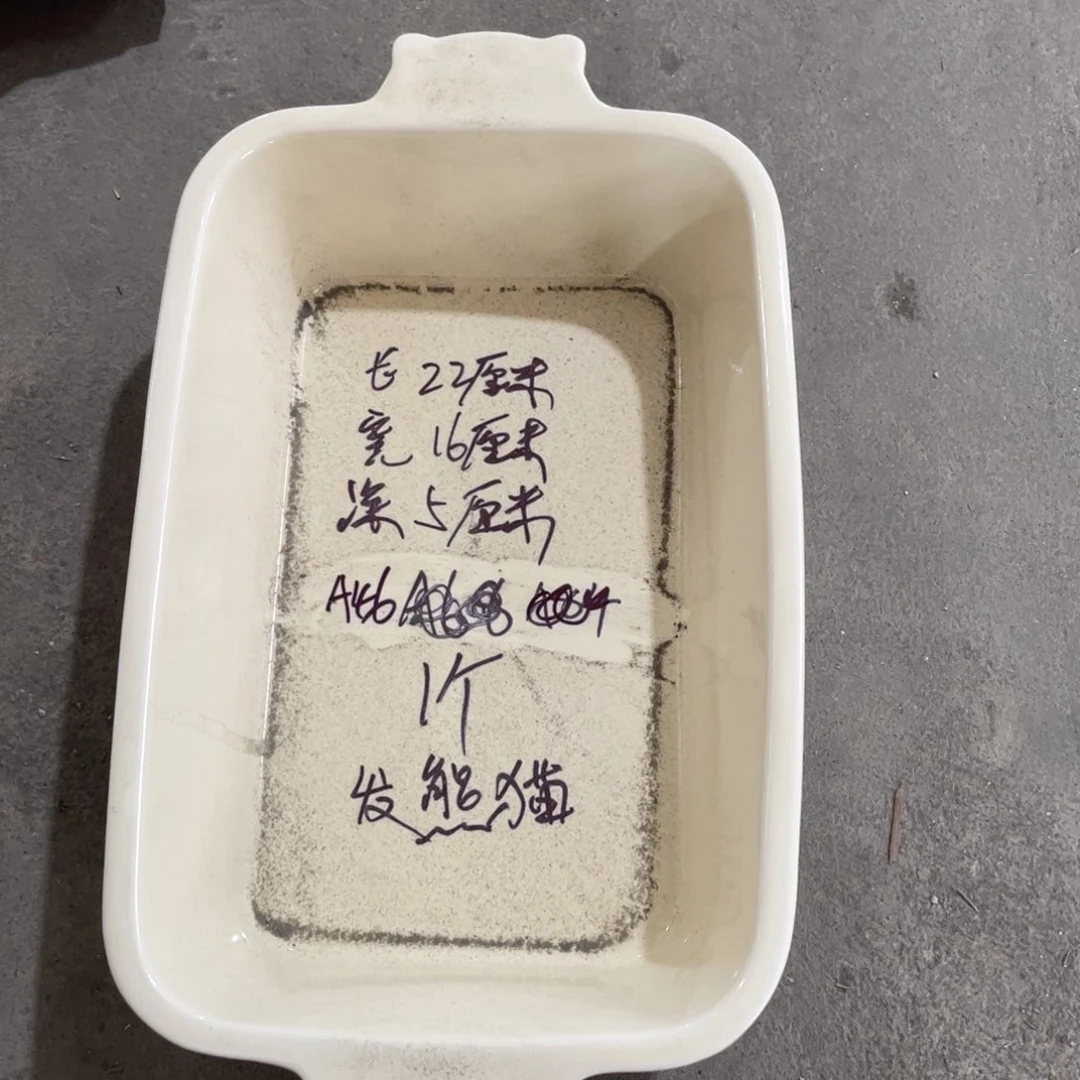 长 22厘米
宽 16厘米
深 5厘米
A46
1个
发熊猫